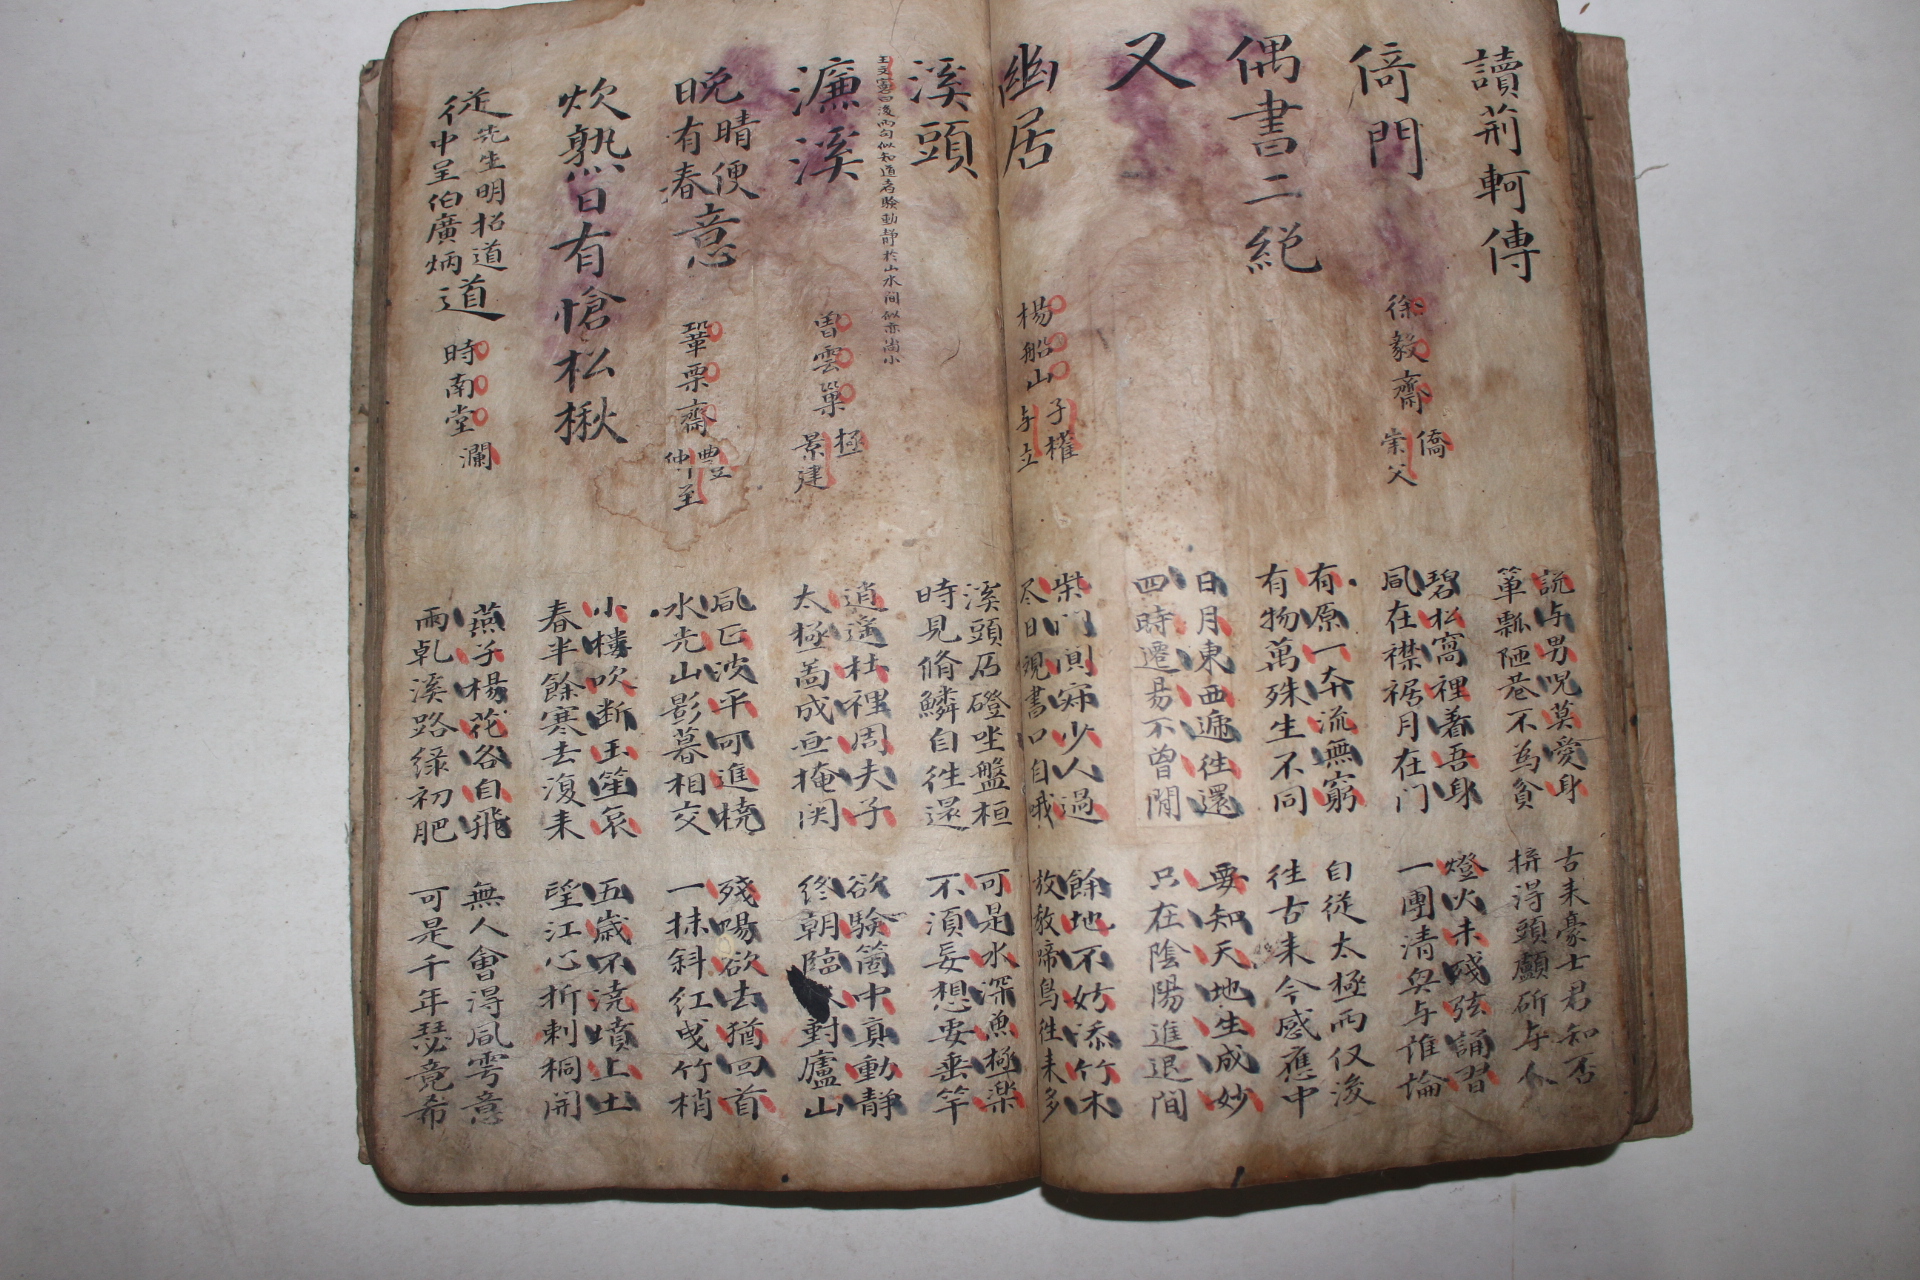 讀荊軻傳
說与男児莫愛身
簞瓢陋巷不為貧
古来豪士君知否
拚得頭顱斫与人
倚門
徐毅齋
僑
崇父
碧松窩裡着吾身
風在襟裾月在门
燈火未殘弦誦習
一團清與与誰論
偶書二絕
有原一本流無窮
有物萬殊生不同
自從太極両仪後
徃古来今感應中
又
日月東西遞徃還
四時遷易不曾閒
要知天地生成妙
只在陰陽進退间
幽居
楊船山
子權
与立
柴门闃寂少人過
尽日現書口自哦
餘地不妨添竹木
放教啼鳥徃来多
溪頭
溪頭石磴坐盤桓
時見脩鱗自徃還
可是水深魚極楽
不湏妄想要垂竿
王文憲曰後両句似知道者驗動靜於山水间似亦尚小
濂溪
曽雲巢
極
景建
逍遥杜裡周夫子
太極啚成亟掩関
欲驗箇中真動靜
終朝臨水對廬山
晩晴便
有春意
鞏栗齋
豊
仲至
風匹波平可進橈
水光山影暮相交
殘陽欲去猶回首
一抺斜红曵竹梢
炊熟日有愴松楸
小樓吹断玉笙哀
春半餘寒去復来
五歳不澆墳上土
望江心折刺桐開
従先生明招道
中呈伯廣炳道
時南堂
瀾
燕子楊花各自飛
雨乹溪路绿初肥
無人會得風雩意
可是千年瑟竟希